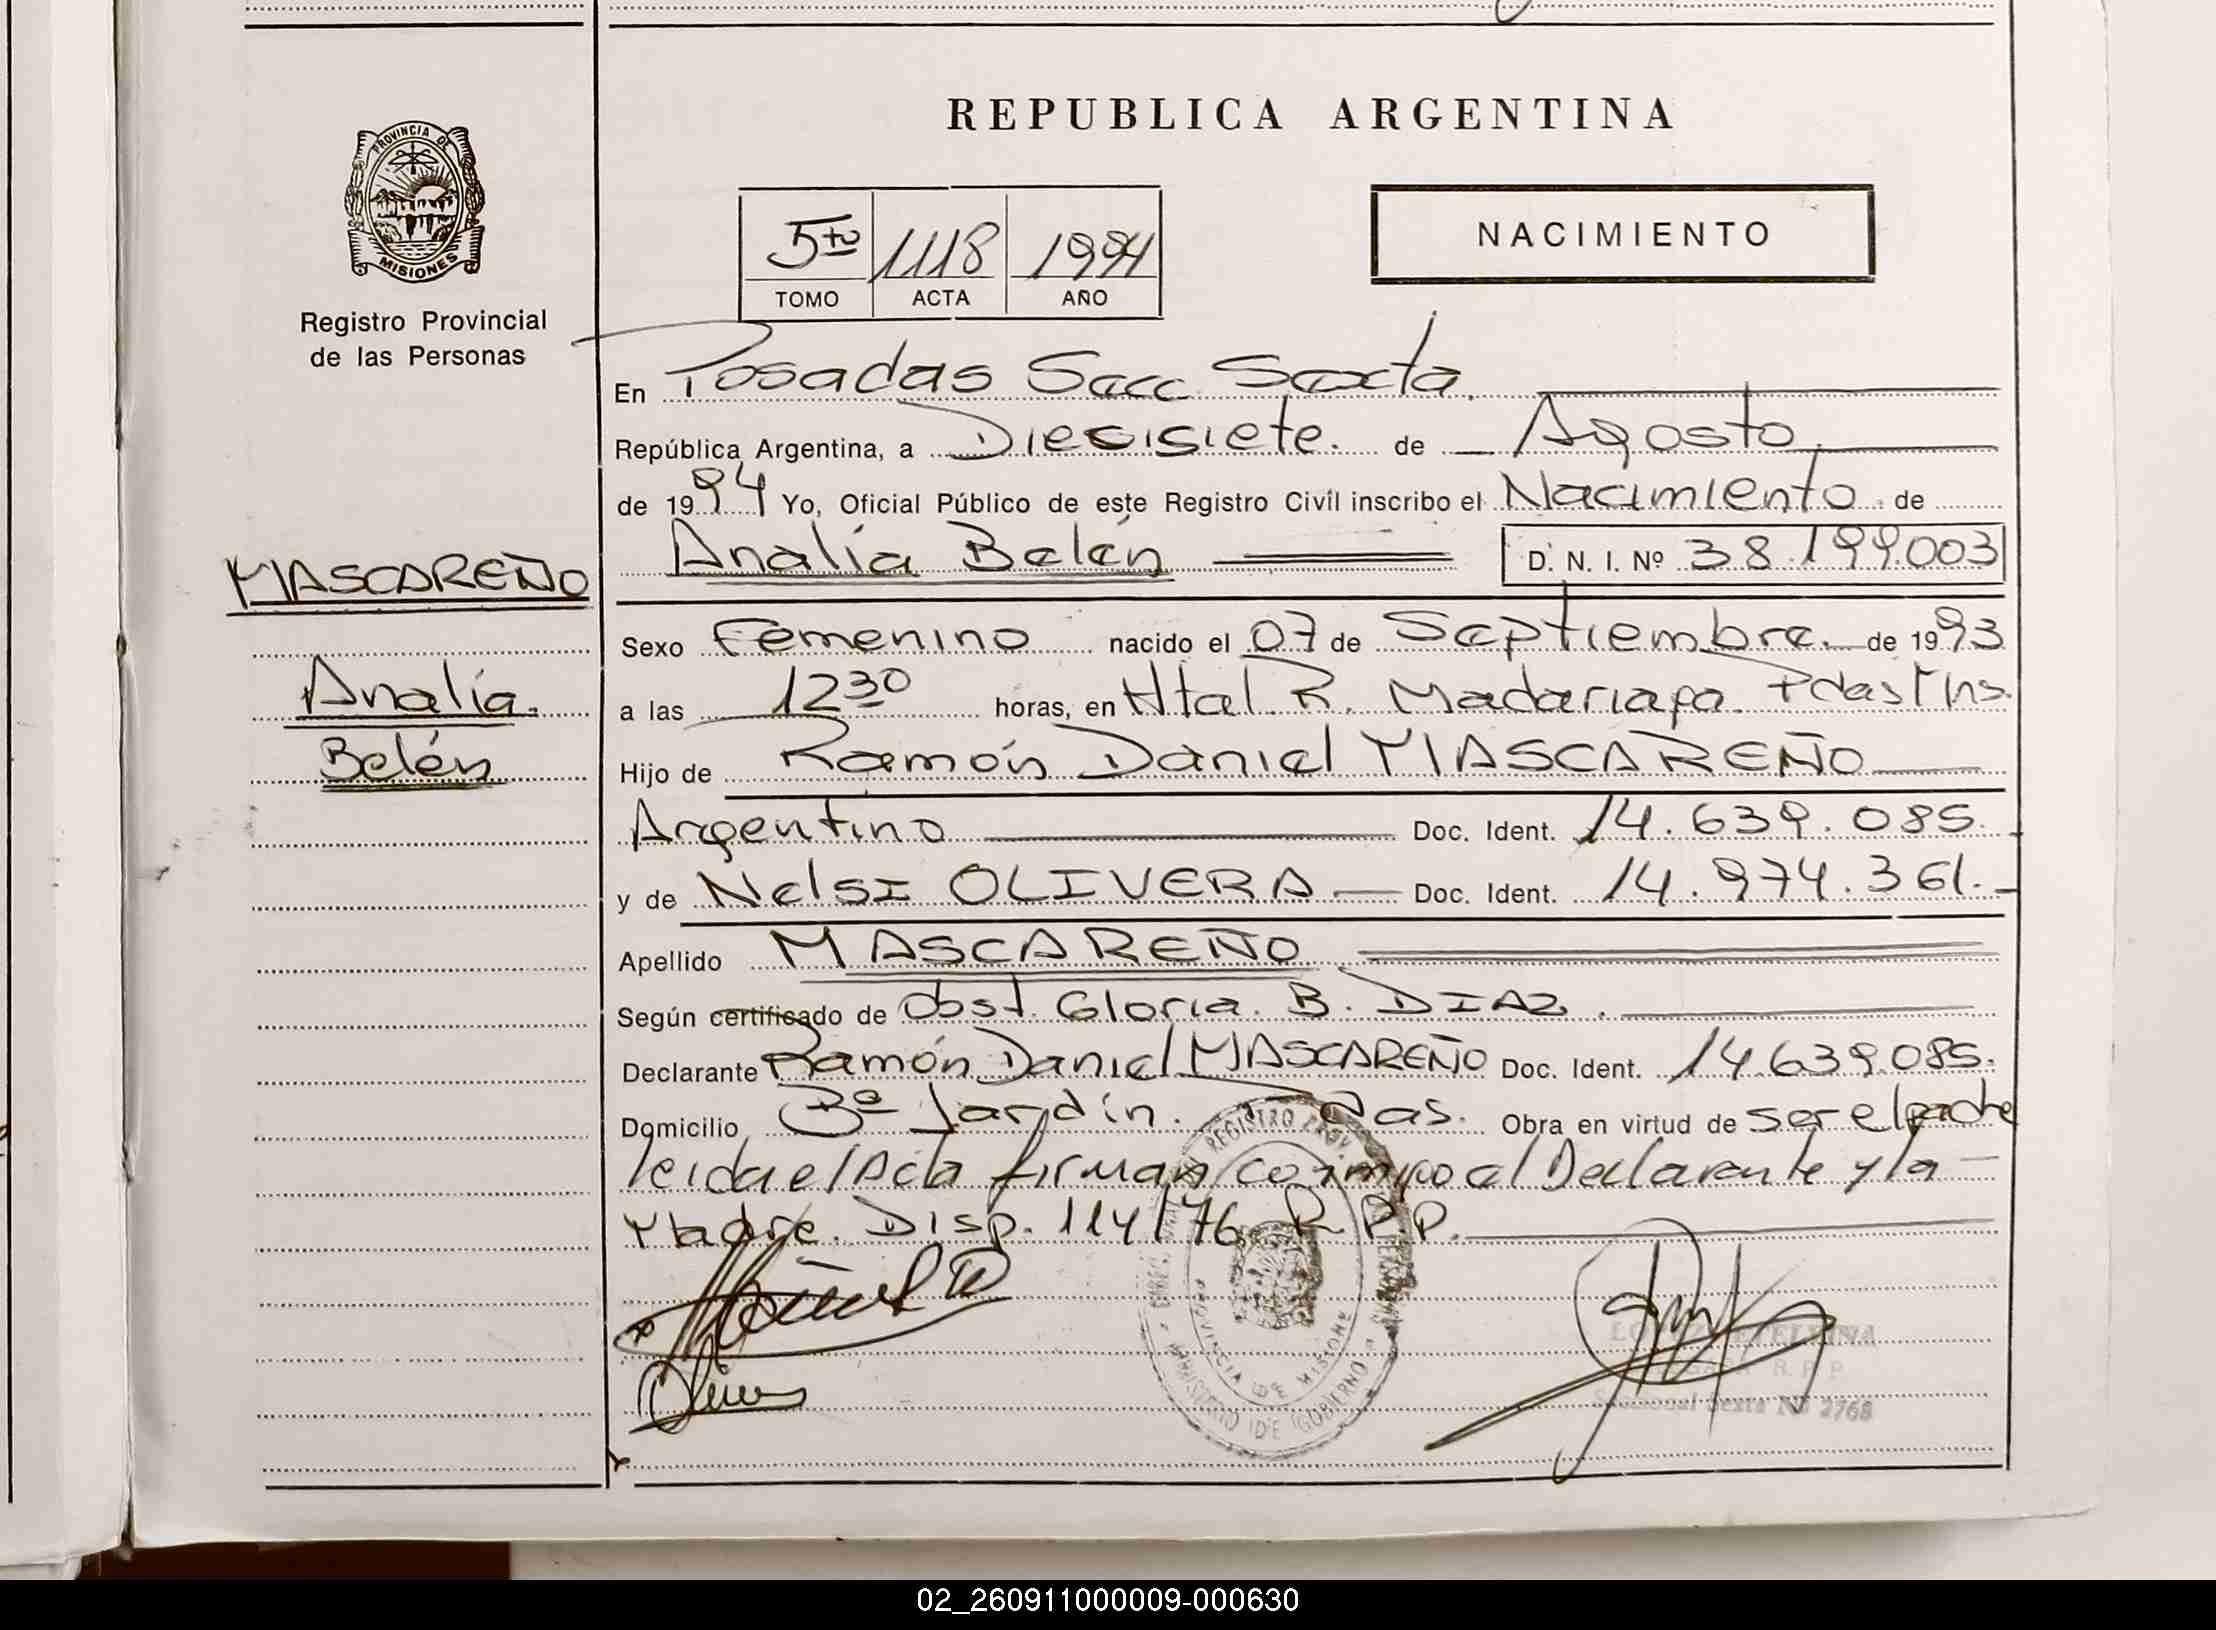 REPUBLICA ARGENTINA
PROVINCIA DE
MISIONES
Registro Provincial
de las Personas
5to 1118 1994
TOMO ACTA AÑO
NACIMIENTO
En Posadas Secc. Sexta.
República Argentina, a Diecisiete. de Agosto.
de 1994 Yo, Oficial Público de este Registro Civil inscribo el Nacimiento de
Analía Belén D. N. I. Nº 38.199.003
MASCAREÑO
Analía.
Belén
Sexo Femenino nacido el 07 de Septiembre. de 1993
a las 12 30 horas, en Htal R. Madariaga. Pdas Mns.
Hijo de Ramón Daniel MASCAREÑO
Argentino Doc. Ident. 14.639.085.
y de Nelsi OLIVERA Doc. Ident. 14.974.361.
Apellido MASCAREÑO
Según certificado de Obst. Gloria. B. DIAZ.
Declarante Ramón Daniel MASCAREÑO Doc. Ident. 14.639.085.
Domicilio Bº Jardín. Pdas. Obra en virtud de ser el padre
leida el Acta firman conmigo el Declarante y la
Madre. Disp. 114/76 R.P.P.
REGISTRO PROV.
PROVINCIA DE MISIONES
MINISTERIO DE GOBIERNO
R. P. P.
Seccional Sexta Nº 2768
02_260911000009-000630